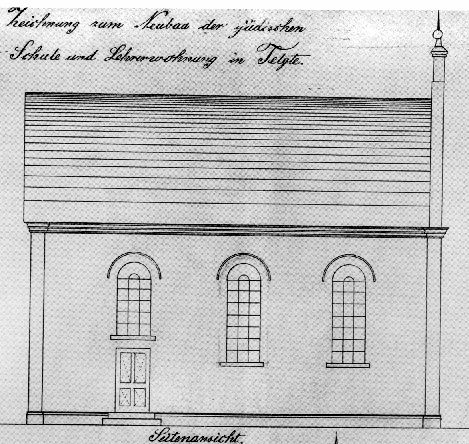 Zeichnung zum Neubau der jüdischen
Schule und Lehrerwohnung in Telgte.
Seitenansicht.